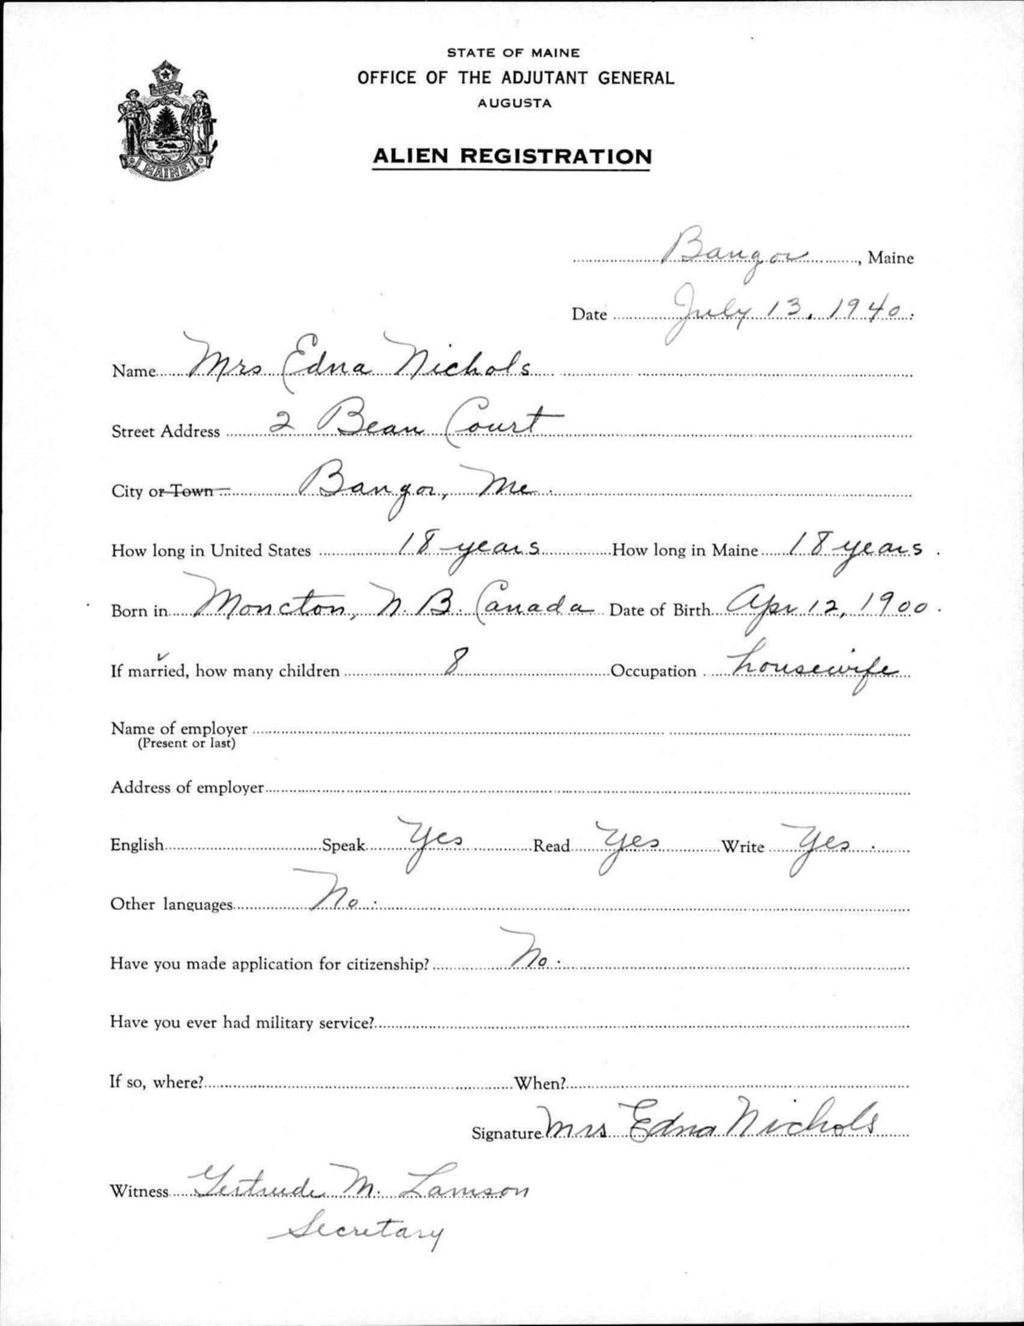 STATE OF MAINE
OFFICE OF THE ADJUTANT GENERAL
AUGUSTA
ALIEN REGISTRATION
MAINE
Bangor, Maine
Date July 13, 1940.
Name Mrs Edna Nichols
Street Address 2 Bean Court
City or Town Bangor, Me.
How long in United States 18 years How long in Maine 18 years.
Born in Moncton, N.B. Canada Date of Birth Apr 12, 1900.
If married, how many children 8 Occupation housewife
Name of employer
(Present or last)
Address of employer
English Speak Yes Read Yes Write Yes.
Other languages No.
Have you made application for citizenship? No.
Have you ever had military service?
If so, where? When?
Signature Mrs Edna Nichols
Witness Gertrude M. Lamson
Secretary